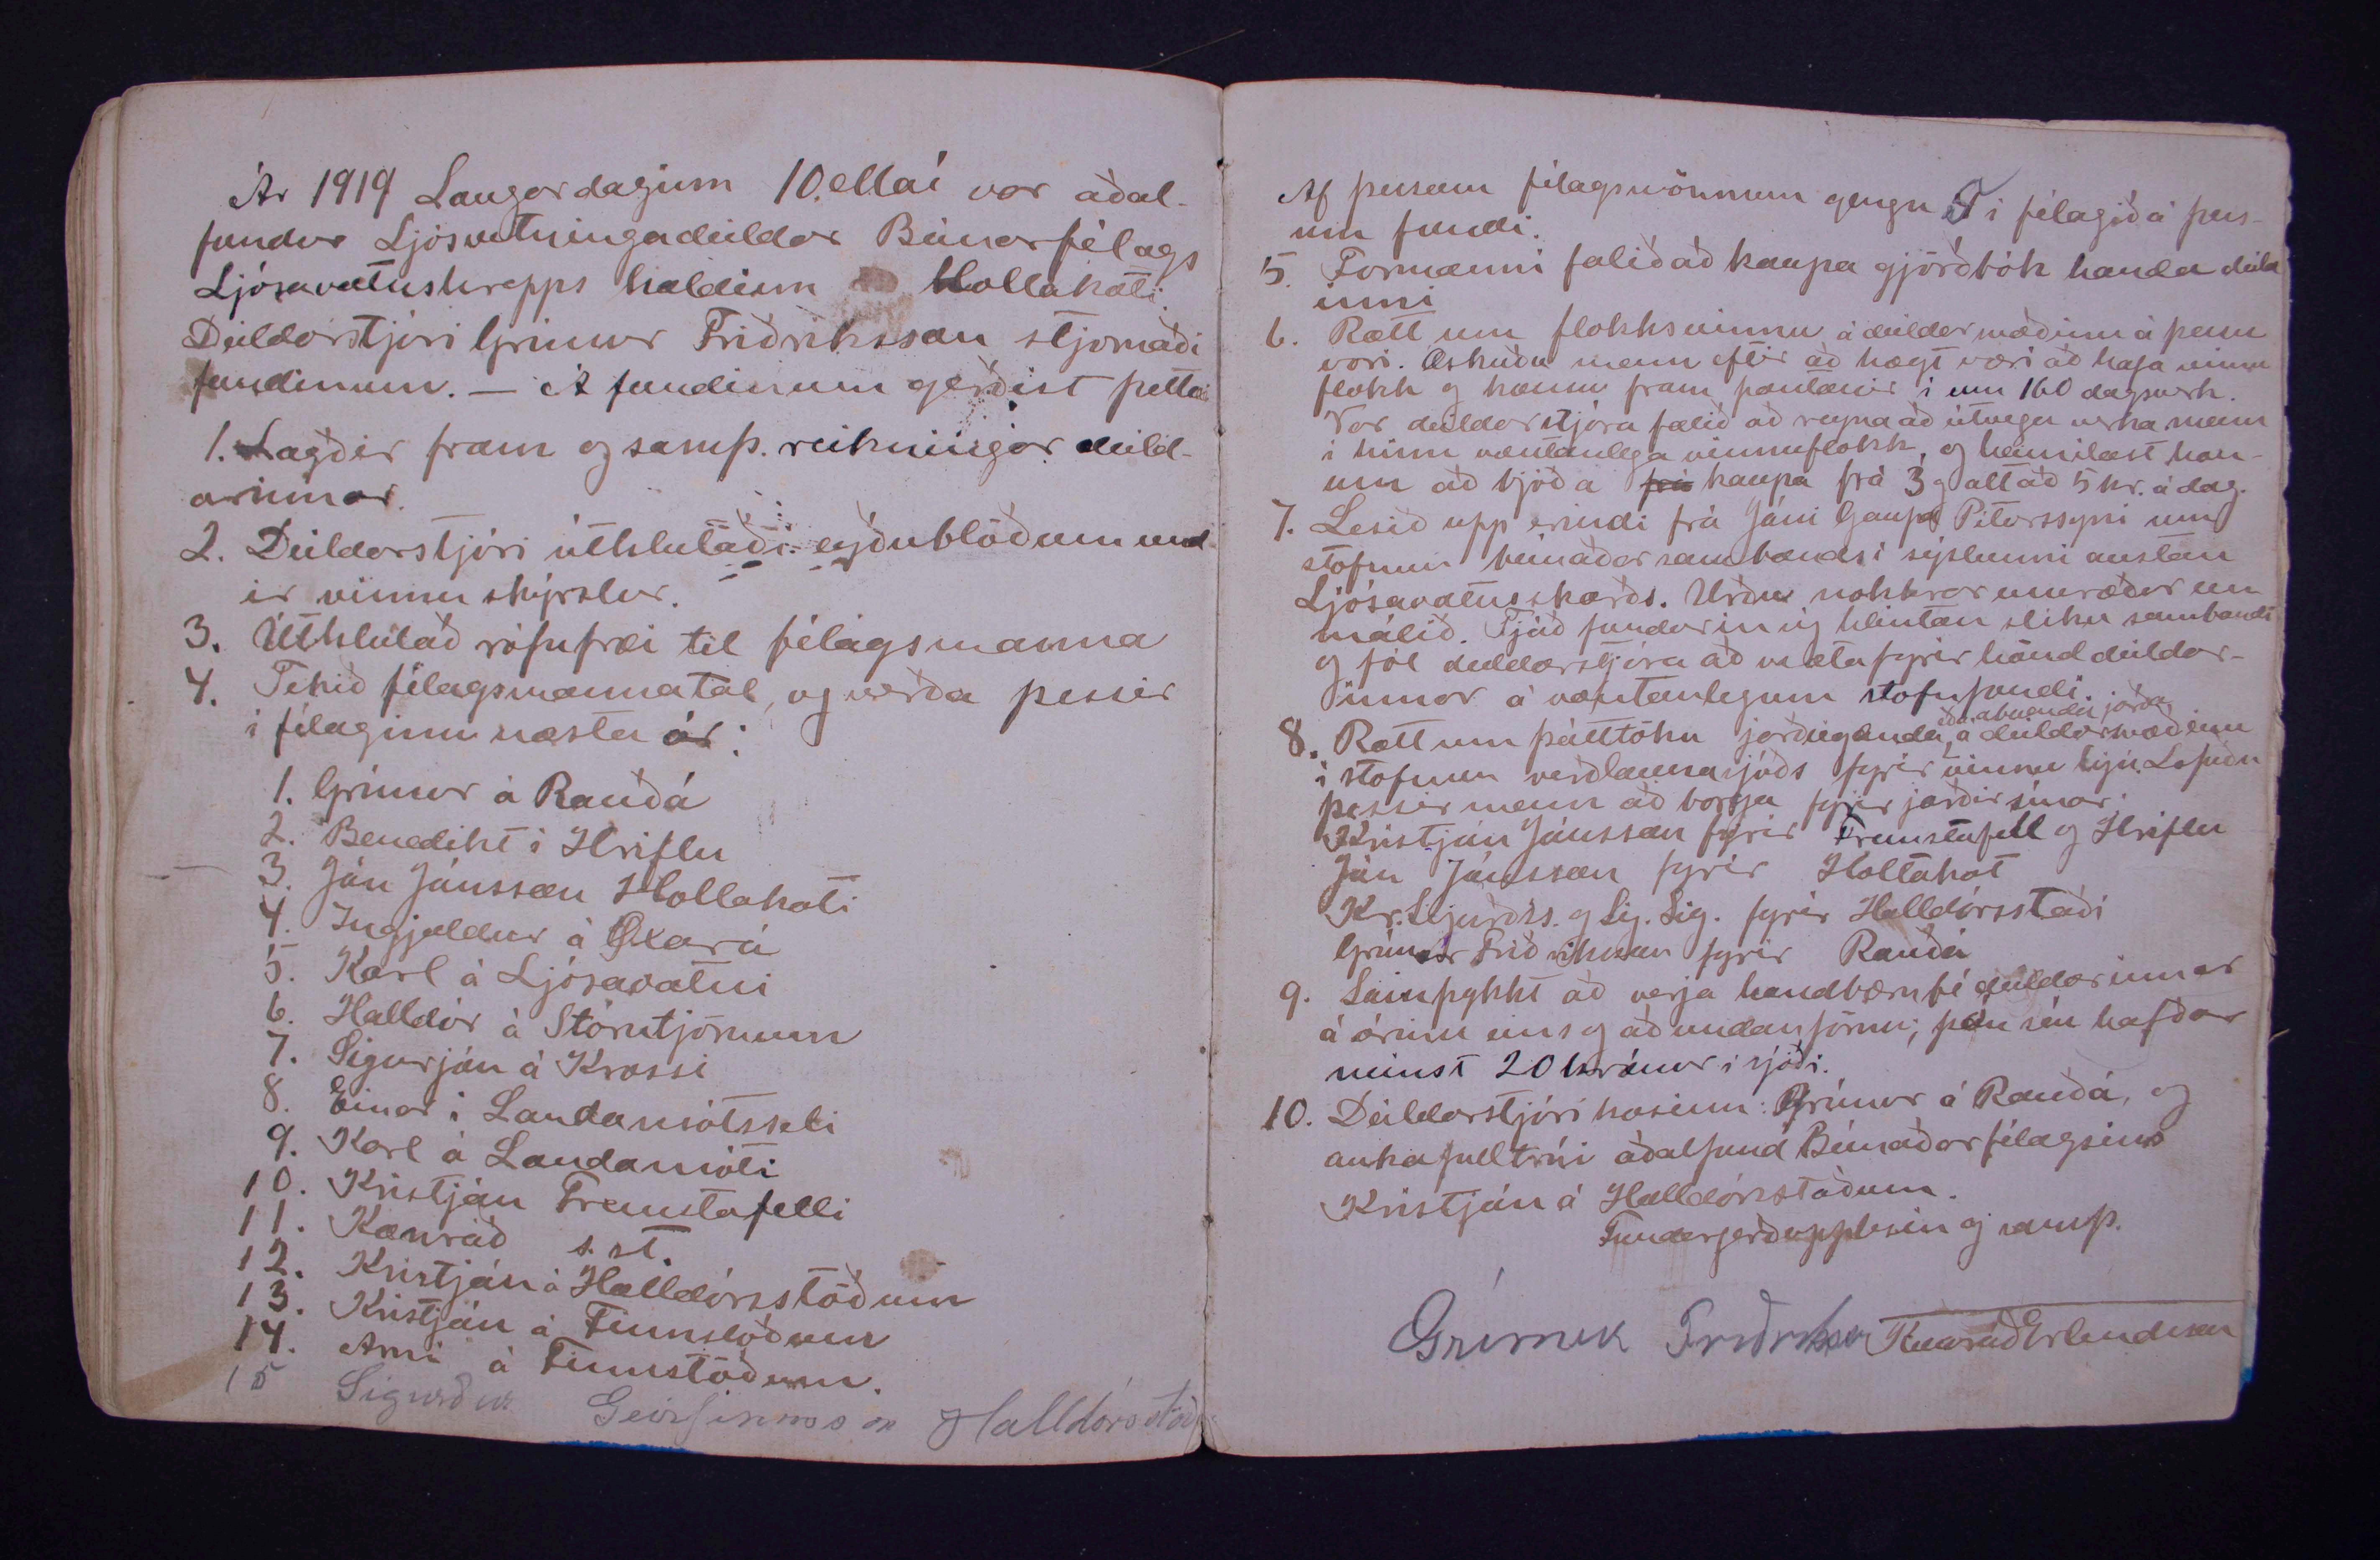 Ár 1919 Laugardaginn 10. Maí var aðal-
fundur Ljósvetningadeildar Búnarfélags
Ljósavatnshrepps haldinn Holtakoti.
Deildarstjóri Grímur Friðriksson stjórnaði
fundinum. — Á fundinum gerðist þetta:
1. Lagðir fram og samþ. reikningar deild-
arinnar.
2. Deildarstjóri úthlutaði eyðublöðum und
ir vinnuskýrslur.
3. Úthlutað rófufræi til félagsmanna
4. Tekið félagsmannatal, og verða þessir
í félaginu næsta ár:
1. Grímur á Rauðá
2. Benedikt í Hriflu
3. Jón Jónsson Holtakoti
4. Ingjaldur á Öxará
5. Karl á Ljósavatni
6. Halldór á Stórutjörnum
7. Sigurjón á Krossi
8. Einar í Landamótsseli
9. Karl á Landamóti
10. Kristján Fremstafelli
11. Konráð s.st.
12. Kristján á Halldórsstöðum
13. Kristján á Finnstöðum
14. Arni á Finnstöðum.
15 Sigurður Geirfinnsson Halldórsstöð
Af þessum félagsmönnum gengu í félagið á þess-
um fundi.
5. Formanni falið að kaupa gjörðbók handa deild
inni
6. Rætt um flokksvinnu á deildarsvæðinu á þessu
vori. Óskuðu menn eftir að hægt væri að hafa vinnu
flokk og komu fram pantanir í um 160 dagsverk.
Var deildarstjóra falið að reyna að útvega verkamenn
í hinn væntanlega vinnuflokk, og heimilast hon-
um að bjóða frá kaupa frá 3 og alt að 5 kr. á dag.
7. Lesið upp erindi frá Jóni Gauta Péturssyni um
stofnun búnaðarsambands í sýslunni austan
Ljósavatnsskarðs. Urðu nokkrar umræður um
málið. Tjáð fundurinn sig hlintan slíku sambandi
og fól deildarstjóra að mæta fyrir hönd deildar-
innar á væntanlegum stofnfundi.
eða ábúenda jarða
8. Rætt um þátttöku jarðeigenda, á deildarsvæðinu
í stofnun verðlaunasjóðs fyrir vinnu hjú. Lofuðu
þessir menn að borga fyrir jarðir sínar:
Kristján Jónsson fyrir Fremstafell og Hriflu
Jón Jónsson fyrir Holtakot
Kr. Sigurðs. og Sig. Sig. fyrir Halldórsstaði
Grímur Friðriksson fyrir Rauðá
9. Samþykkt að verja handbæru fé deildarinnar
á árinu eins og að undanförnu; þó séu hafðar
minst 20 krónur í sjóði.
10. Deildarstjóri kosinn: Grímur á Rauðá, og
aukafulltrúi aðalfund Búnaðarfélagsins
Kristján á Halldórsstöðum.
Fundargerð upplesin og samþ.
Grímur Friðriksson Konráð Erlendsson